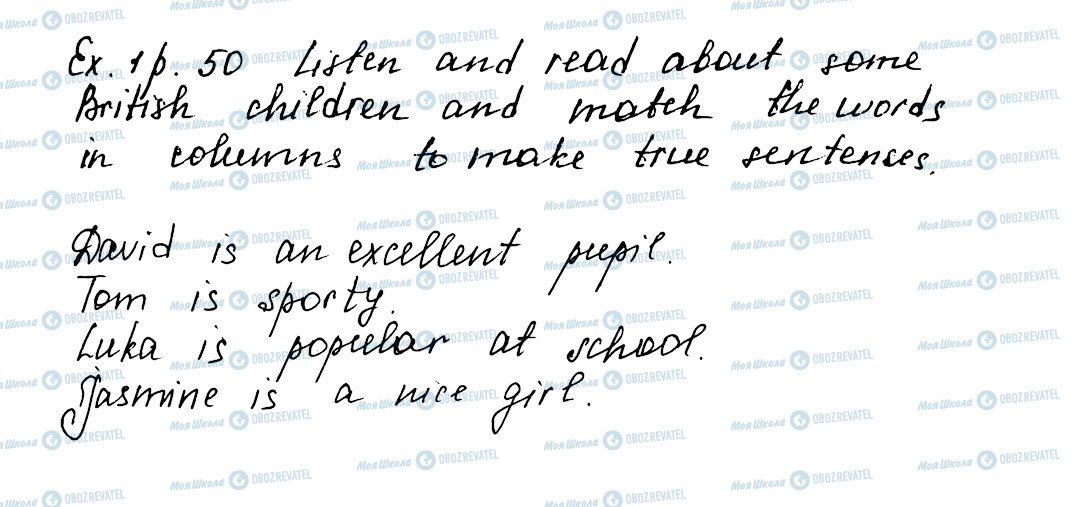 Ex. 1 p. 50 Listen and read about some
British children and match the words
in columns to make true sentences.
David is an excellent pupil.
Tom is sporty.
Luka is popular at school.
Jasmine is a nice girl.